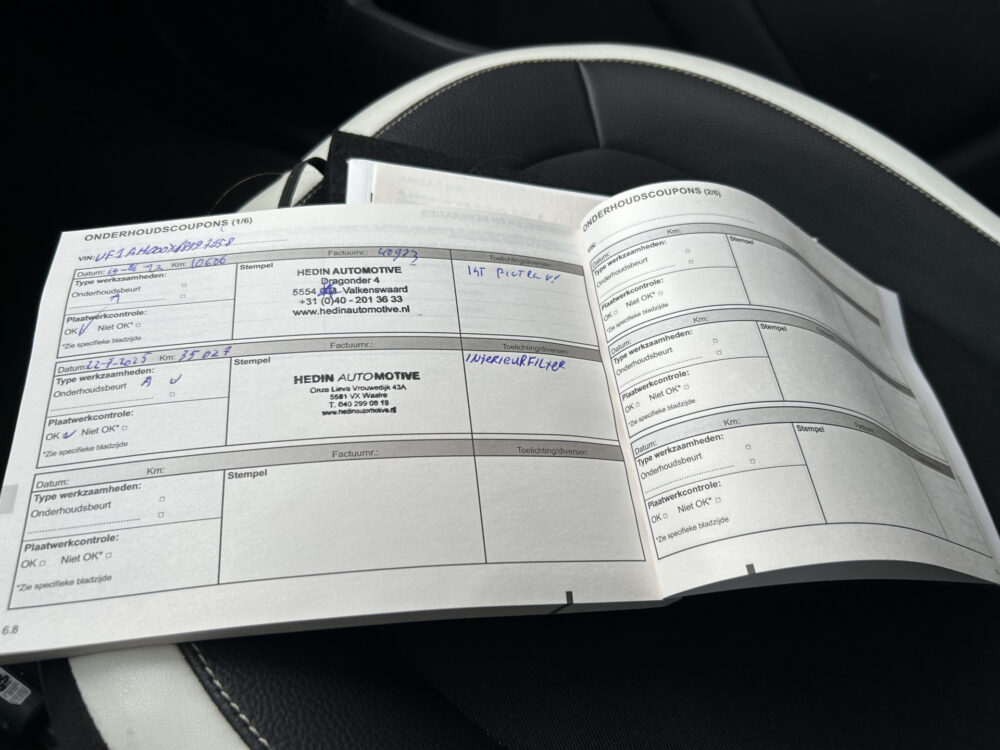 ONDERHOUDSCOUPONS (1/6)
VIN:
Datum: Km: 10606 Factuurnr.: Toelichting/diversen
Type werkzaamheden:
Onderhoudsbeurt
Plaatwerkcontrole:
OK Niet OK*
*Zie specifieke bladzijde
Stempel
HEDIN AUTOMOTIVE
Dragonder 4
5554 Valkenswaard
+31 (0)40 - 201 36 33
www.hedinautomotive.nl
Datum: 22-7-2025 Km: 35027 Factuurnr.: Toelichting/diversen
Type werkzaamheden:
Onderhoudsbeurt A
Plaatwerkcontrole:
OK Niet OK*
*Zie specifieke bladzijde
Stempel
HEDIN AUTOMOTIVE
Onze Lieve Vrouwedijk 43A
5581 VX Waalre
T. 040 299 08 18
www.hedinautomotive.nl
INTERIEURFILTER
Datum: Km: Factuurnr.: Toelichting/diversen
Type werkzaamheden:
Onderhoudsbeurt
Plaatwerkcontrole:
OK Niet OK*
*Zie specifieke bladzijde
Stempel
6.8
ONDERHOUDSCOUPONS (2/6)
VIN:
Datum: Km:
Type werkzaamheden:
Onderhoudsbeurt
Plaatwerkcontrole:
OK Niet OK*
*Zie specifieke bladzijde
Stempel
Datum: Km:
Type werkzaamheden:
Onderhoudsbeurt
Plaatwerkcontrole:
OK Niet OK*
*Zie specifieke bladzijde
Stempel
Datum: Km:
Type werkzaamheden:
Onderhoudsbeurt
Plaatwerkcontrole:
OK Niet OK*
*Zie specifieke bladzijde
Stempel